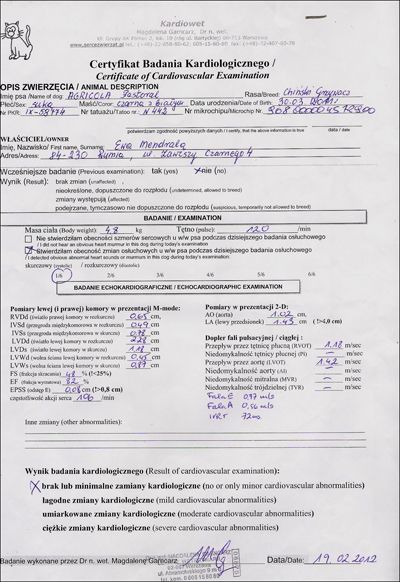 Kardiowet
Magdalena Garncarz, Dr n. wet.
Certyfikat Badania Kardiologicznego /
Certificate of Cardiovascular Examination
OPIS ZWIERZĘCIA / ANIMAL DESCRIPTION
Imię psa /Name of dog: AGRICOLA Pastoral Rasa/Breed: Chiński Grzywacz
Płeć/Sex: suka Maść/Color: czarna z białym Data urodzenia/Date of Birth: 30.03.
Nr PKR: IX-58974 Nr tatuażu/Tatoo nr.: N442 Nr mikrochipu/Microchip No:
potwierdzam zgodność powyższych danych/ I certify, that the above information is true data / date
WŁAŚCICIEL/OWNER
Imię, Nazwisko/ First name, Surname: Ewa Mendrala
Adres/Adress: 84-230 Rumia, ul. Zawiszy Czarnego 4
Wcześniejsze badanie (Previous examination): tak (yes) nie (no)
Wynik (Result): brak zmian (unaffected)
nieokreślone, dopuszczone do rozpłodu (undetermined, allowed to breed)
zmiany występują (affected)
podejrzane, tymczasowo nie dopuszczone do rozpłodu (suspicious, temporarily not allowed to breed)
BADANIE / EXAMINATION
Masa ciała (Body weight): 4,8 kg Tętno (pulse): 120 /min
Nie stwierdziłam obecności szmerów sercowych u w/w psa podczas dzisiejszego badania osłuchowego
/ I did not hear an obvious heart murmur in this dog during today's examination
Stwierdziłam obecność zmian osłuchowych u w/w psa podczas dzisiejszego badania osłuchowego
/ I detected obvious abnormal heart sounds or murmurs in this dog during today's examination
skurczowy (systolic) / rozkurczowy (diastolic)
1/6 2/6 3/6 4/6 5/6 6/6
BADANIE ECHOKARDIOGRAFICZNE / ECHOCARDIOGRAPHIC EXAMINATION
Pomiary lewej (i prawej) komory w prezentacji M-mode:
RVDd (światło prawej komory w rozkurczu) 0,65 cm,
IVSd (przegroda międzykomorowa w rozkurczu) 0,49 cm
IVSs (przegroda międzykomorowa w skurczu) 0,78 cm
LVDd (światło lewej komory w rozkurczu) 2,28 cm
LVDs (światło lewej komory w skurczu) 1,18 cm
LVWd (wolna ściana lewej komory w rozkurczu) 0,45 cm
LVWs (wolna ściana lewej komory w skurczu) 0,89 cm
FS (frakcja skracania) 48 % (!<25%)
EF (frakcja wyrzutowa) 82 %
EPSS (odstęp E) 0,08 cm (!>0,8 cm)
częstotliwość akcji serca 106 /min
Pomiary w prezentacji 2-D:
AO (aorta) 1.02 cm,
LA (lewy przedsionek) 1.43 cm (!>4,0 cm)
Dopler fali pulsacyjnej / ciągłej :
Przepływ przez tętnicę płucną (RVOT) 1.18 m/sec
Niedomykalność tętnicy płucnej (PI) — m/sec
Przepływ przez aortę (LVOT) 1.42 m/sec
Niedomykalność aorty (AI) — m/sec
Niedomykalność mitralna (MVR) — m/sec
Niedomykalność trójdzielna (TVR) — m/sec
Fala E 0,77 m/s
Fala A 0,56 m/s
IVRT 72ms
Inne zmiany (other abnormalities):
Wynik badania kardiologicznego (Result of cardiovascular examination):
brak lub minimalne zamiany kardiologiczne (no or only minor cardiovascular abnormalities)
łagodne zmiany kardiologiczne (mild cardiovascular abnormalities)
umiarkowane zmiany kardiologiczne (moderate cardiovascular abnormalities)
ciężkie zmiany kardiologiczne (severe cardiovascular abnormalities)
Badanie wykonane przez Dr n. wet. Magdalenę Garncarz Data/Date: 19.02.2012